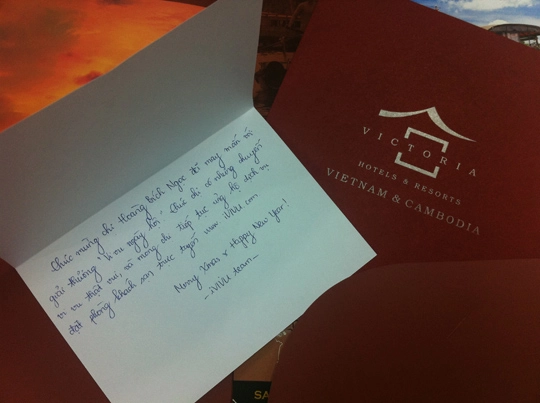 Chúc mừng chị Hoàng Bích Ngọc đã may mắn với
giải thưởng "Vi vu ngày hội". Chúc chị có những chuyến
vi vu thật vui, và mong chị tiếp tục ủng hộ dịch vụ
đặt phòng khách sạn trực tuyến www.iVIVU.com
Merry Xmas & Happy New Year!
-iVIVU team-
VICTORIA
HOTELS & RESORTS
VIETNAM & CAMBODIA
SA